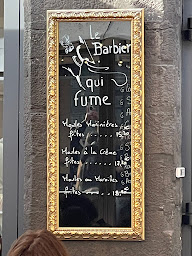 le
Barbier
qui
fume
Moules Marinières
frites
Moules à la Crème
frites
Moules au Maroilles
frites